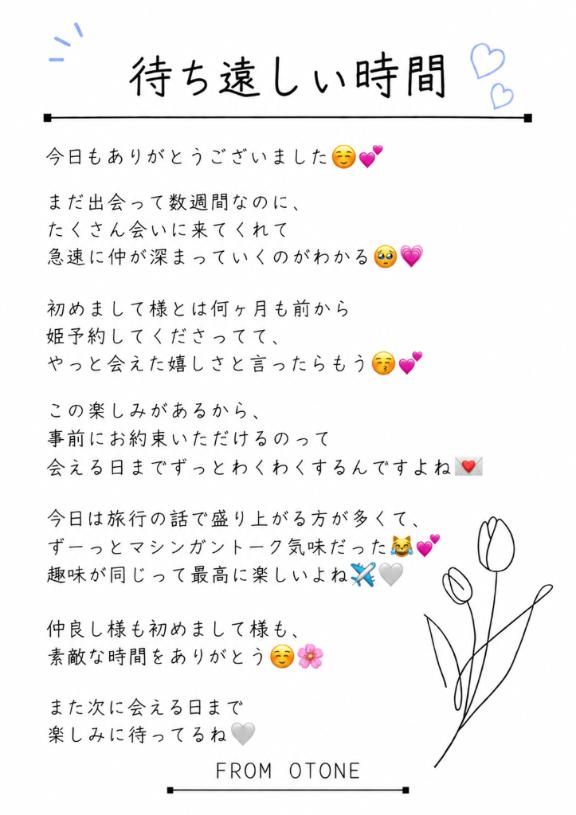 待ち遠しい時間
今日もありがとうございました☺️💕
まだ出会って数週間なのに、
たくさん会いに来てくれて
急速に仲が深まっていくのがわかる🥹💗
初めまして様とは何ヶ月も前から
姫予約してくださってて、
やっと会えた嬉しさと言ったらもう😚💕
この楽しみがあるから、
事前にお約束いただけるのって
会える日までずっとわくわくするんですよね💌
今日は旅行の話で盛り上がる方が多くて、
ずーっとマシンガントーク気味だった😹💕
趣味が同じって最高に楽しいよね✈️🤍
仲良し様も初めまして様も、
素敵な時間をありがとう☺️🌸
また次に会える日まで
楽しみに待ってるね🤍
FROM OTONE